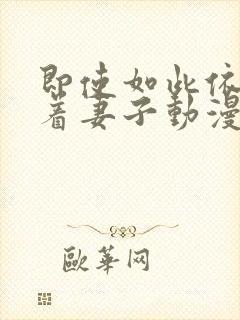 即使如此依
着妻子動漫
歐華网